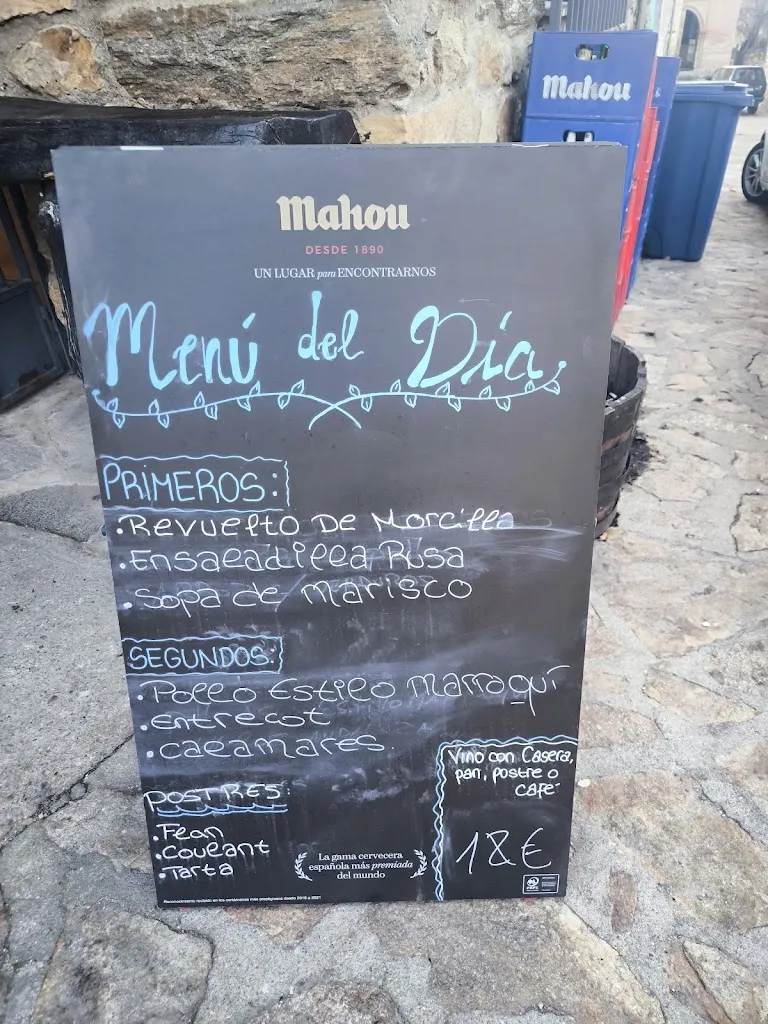 Mahou
Mahou
DESDE 1890
UN LUGAR para ENCONTRARNOS
Menú del Día
PRIMEROS:
. Revuelto De Morcilla
. Ensaladilla Rusa
. Sopa de Marisco
SEGUNDOS:
. Pollo Estilo Marroquí
. Entrecot
. Calamares.
Vino con Casera,
pan, postre o
café
18€
POSTRES:
. Flan
. Coulant
. Tarta
La gama cervecera
española más premiada
del mundo